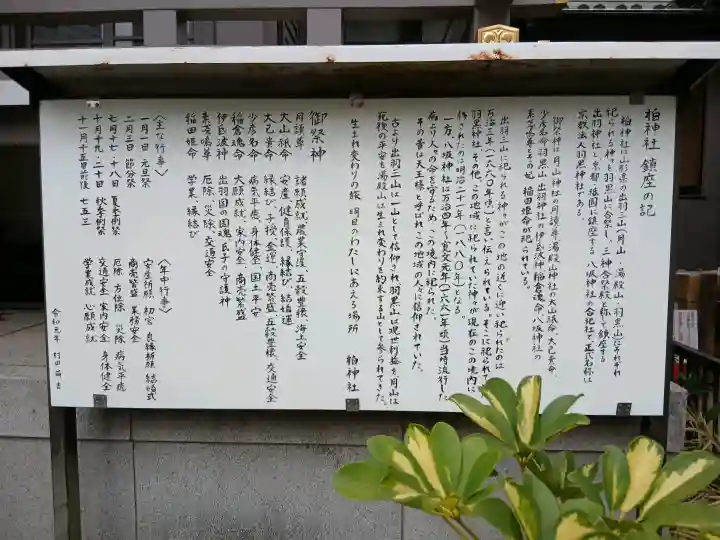 柏神社 鎮座の記
柏神社は山形県の出羽三山(月山、湯殿山、羽黒山)にそれぞれ
祀られる神々を羽黒山に合祭し、三神合祭殿と称して鎮座する
出羽神社と京都・祇園に鎮座する 八坂神社を合祀社で正式名称は
宗教法人羽黒山八坂神社である。
御祭神は月山神社の月読尊、湯殿山神社の大山祇命、大己貴命、
少彦名命羽黒山、出羽神社の伊氐波神稲倉魂命、八坂神社の
素戔嗚尊とその妃 稲田姫命が祀られている。
出羽三山に祀られる神々がこの地の近くに遷い祀られたのは
万治三年(一六六〇年頃)と言い伝えられている。そこに祀られて
羽黒神社とその他、この地域に祀られていた神々が現在のこの境内に
移されたのは明治二十一年(一八八〇年)となる。
一方、八坂神社は万治四年(寛文元年)(一六六一年頃)当時流行した
病より人々の命を守るため、この境内に祀られた。
その昔は天王様と呼ばれ、この地域の人々に信仰されていた。
古より出羽三山は一山として信仰され羽黒山は現世利益を、月山は
死後の平安を湯殿山は生まれ変わりを約束する山として参られてきた。
生まれ変わりの旅 明日のわたしにあえる場所 柏神社
御祭神
月読尊 諸願成就、農業守護、五穀豊穣、海上安全
大山祇命 安産、健康保護、縁結び、結婚運
大己貴命 縁結び、子授、金運、商売繁盛、五穀豊穣、交通安全
少彦名命 病気平癒、身体健全、国土平安
稲倉魂命 大願成就、家内安全、商売繁盛
伊氐波神 出羽国の国魂、氏子の守護神
素戔嗚尊 厄除、災除、交通安全
稲田姫命 学業、縁結び
〈主な行事〉
一月一日 元旦祭
二月三日 節分祭
七月十七・十八日 夏季例祭
十月十九・二十日 秋季例祭
十一月十五日前後 七五三
〈年中行事〉
安産祈願 初宮 良縁祈願 結婚式
商売繁盛 業務安全
厄除 方位除 災除 病気平癒
交通安全 家内安全 身体健全
学業成就 心願成就
令和元年